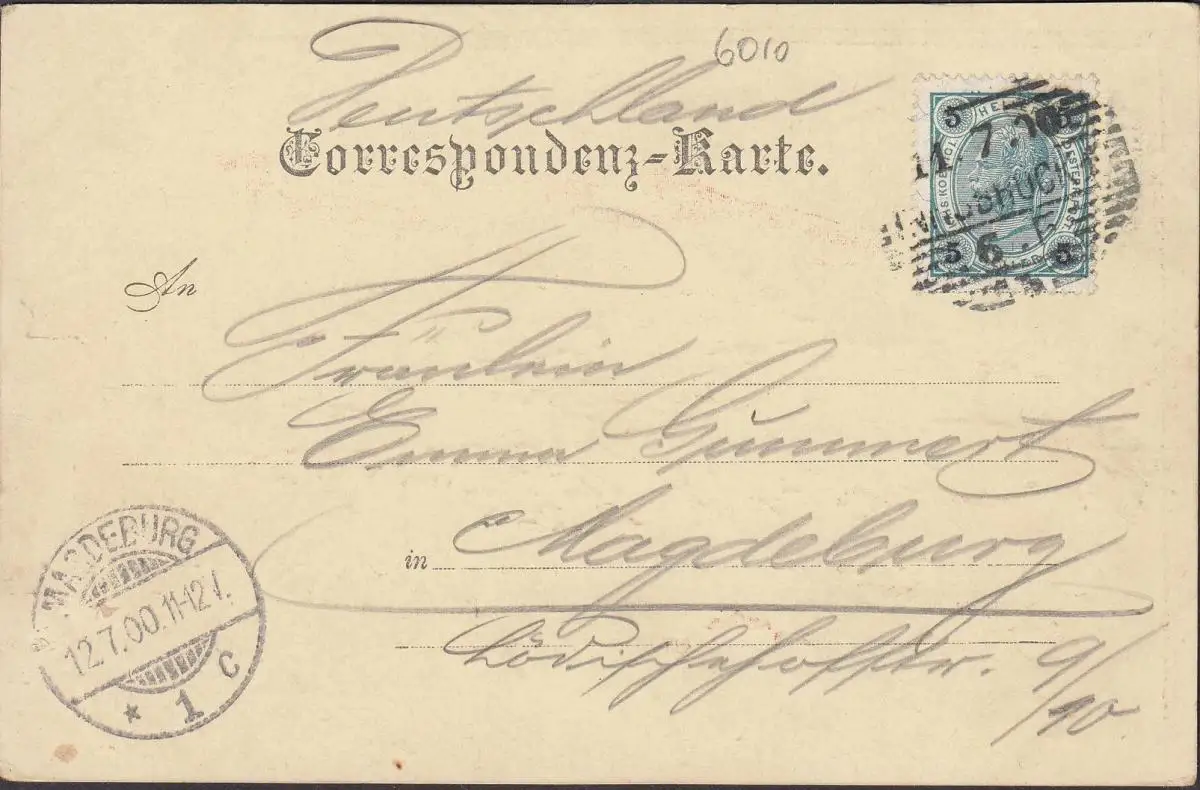 6010
Deutschland
Correspondenz-Karte.
5 HELLER 5
11.7.00
INNSBRUCK
5 6. 5
An
Fräulein
Emma Gummert
in Magdeburg
9/10
MAGDEBURG
12.7.00.11-12V.
* 1 c